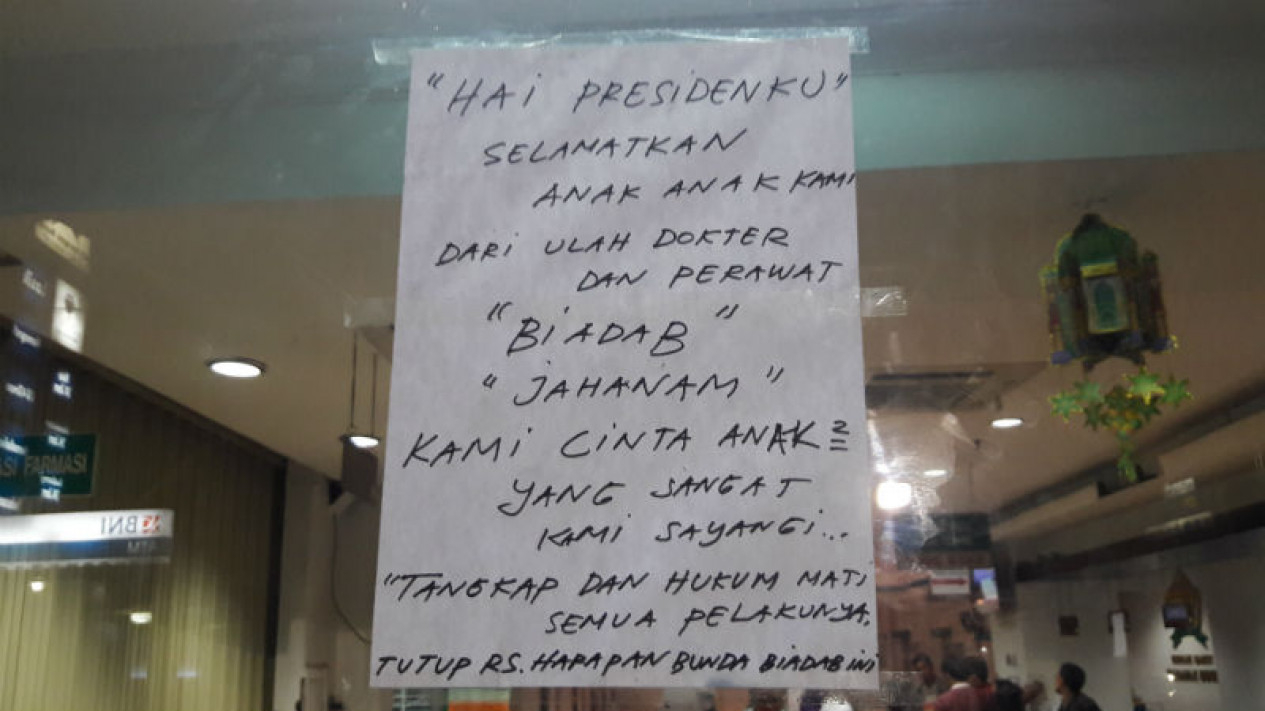 "HAi PRESiDENKU"
SELAMATKAN
ANAK ANAK KAMi
DARi ULAH DOKTER
DAN PERAWAT
"BiADAB"
"JAHANAM"
KAMi CiNTA ANAK²
YANG SANGAT
KAMi SAYANGi...
"TANGKAP DAN HUKUM MATi
SEMUA PELAKUNYA.
TUTUP RS. HARAPAN BUNDA BiADAB iNi
ASI FARMASI
BNI